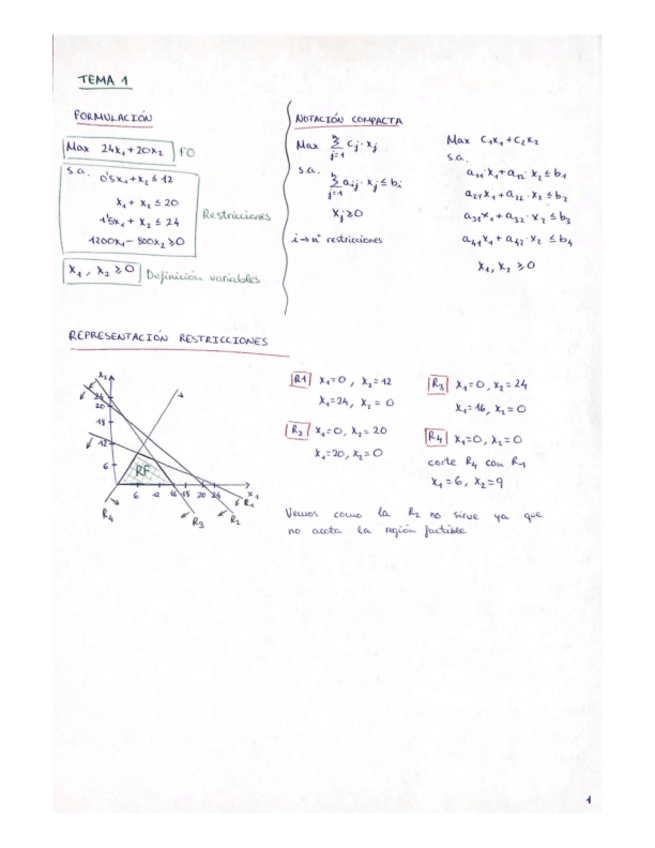 TEMA 1
FORMULACIÓN
Max 24x₁+20x₂ FO
s.a. 0'5x₁+x₂ ≤ 12
x₁ + x₂ ≤ 20
1'5x₁ + x₂ ≤ 24
1200x₁ - 800x₂ ≥ 0
Restricciones
x₁, x₂ ≥ 0 Definición variables
NOTACIÓN COMPACTA
Max Σ cⱼ · xⱼ
j=1
s.a. Σ aᵢⱼ · xⱼ ≤ bᵢ
j=1
xⱼ ≥ 0
i → nº restricciones
Max c₁x₁+c₂x₂
s.a.
a₁₁·x₁+a₁₂·x₂ ≤ b₁
a₂₁x₁+a₂₂·x₂ ≤ b₂
a₃₁x₁+a₃₂·x₂ ≤ b₃
a₄₁x₁+a₄₂·x₂ ≤ b₄
x₁, x₂ ≥ 0
REPRESENTACIÓN RESTRICCIONES
x₂
24
20
18
12
6
RF
6 12 16 18 20 24 x₁
R₁
R₄ R₃ R₂
R1 x₁=0, x₂=12
x₁=24, x₂=0
R₂ x₁=0, x₂=20
x₁=20, x₂=0
R₃ x₁=0, x₂=24
x₁=16, x₂=0
R₄ x₁=0, x₂=0
corte R₄ con R₁
x₁=6, x₂=9
Vemos como la R₂ no sirve ya que
no acota la región factible
1